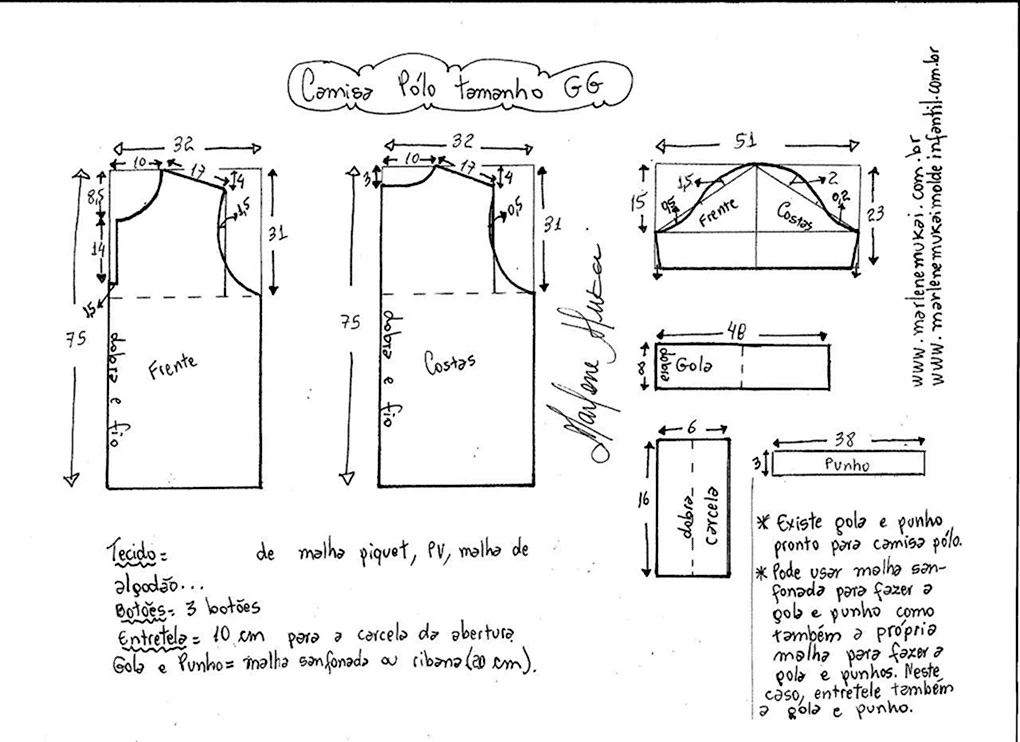 Camisa Pólo tamanho GG
32
10
17
4
8,5
14
1,5
1,5
31
75
dobra e fio
Frente
32
10
17
3
4
0,5
31
75
dobra e fio
Costas
Marlene Mukai
51
15
0,5
1,5
2
0,2
23
Frente
Costas
48
8
dobra
Gola
6
16
dobra
carcela
38
3
Punho
www.marlenemukai.com.br
www.marlenemukaimoldeinfantil.com.br
Tecido= de malha piquet, PV, malha de
algodão...
Botões= 3 botões
Entretela= 10 cm para a carcela da abertura.
Gola e Punho= malha sanfonada ou ribana (20 cm).
* Existe gola e punho
pronto para camisa pólo.
* Pode usar malha san-
fonada para fazer a
gola e punho como
também a própria
malha para fazer a
gola e punhos. Neste
caso, entretele também
a gola e punho.